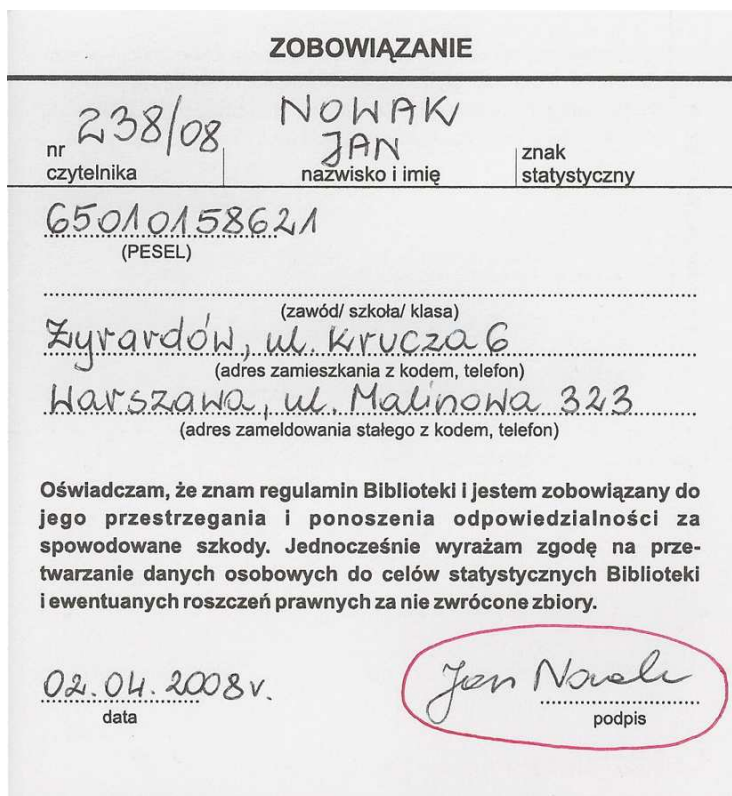 ZOBOWIĄZANIE
238/08
NOWAK
JAN
nr
czytelnika
nazwisko i imię
znak
statystyczny
65010158621
(PESEL)
(zawód/ szkoła/ klasa)
Żyrardów, ul. Krucza 6
(adres zamieszkania z kodem, telefon)
Warszawa, ul. Malinowa 323
(adres zameldowania stałego z kodem, telefon)
Oświadczam, że znam regulamin Biblioteki i jestem zobowiązany do
jego przestrzegania i ponoszenia odpowiedzialności za
spowodowane szkody. Jednocześnie wyrażam zgodę na prze-
twarzanie danych osobowych do celów statystycznych Biblioteki
i ewentuanych roszczeń prawnych za nie zwrócone zbiory.
02.04.2008r.
data
Jan Nowak
podpis